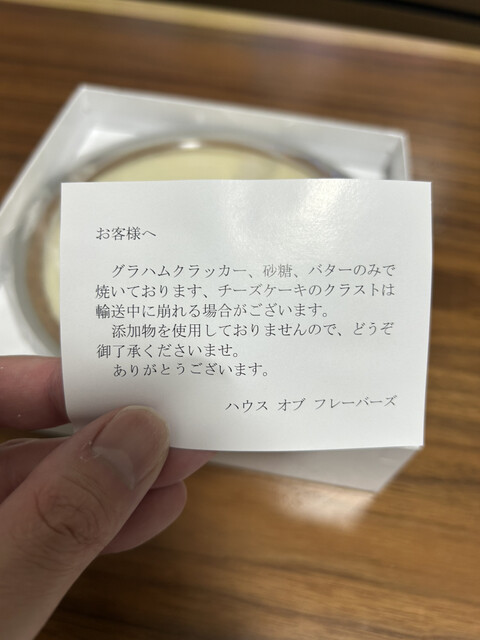 お客様へ
グラハムクラッカー、砂糖、バターのみで
焼いております、チーズケーキのクラストは
輸送中に崩れる場合がございます。
添加物を使用しておりませんので、どうぞ
御了承くださいませ。
ありがとうございます。
ハウス オブ フレーバーズ